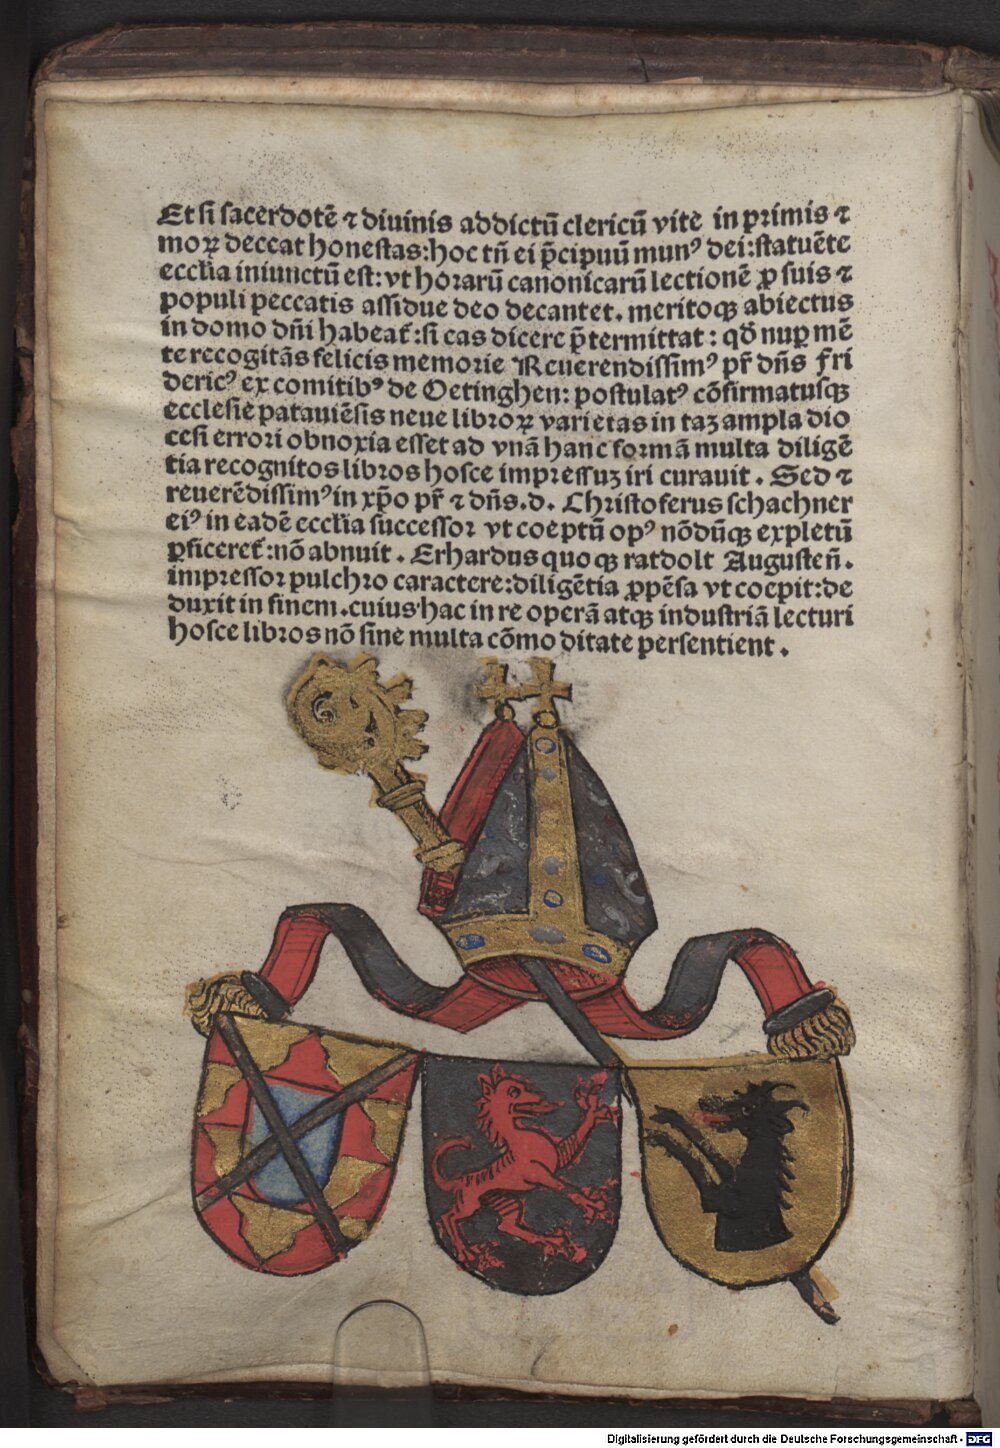 Et si sacerdotē ⁊ diuinis addictū clericū vite in primis ⁊
moꝝ deceat honestas: hoc tn̄ ei p̄cipuū munꝰ dei: statuēte
ecclīa iniunctū est: vt horarū canonicarū lectionē ꝓ suis ⁊
populi peccatis assidue deo decantet. meritoqꝫ abiectus
in domo dn̄i habeat᷑: si eas dicere p̄termittat: qđ nuꝑ mē
te recogitās felicis memorie Reuerendissimꝰ pr̄ dn̄s fri
dericꝰ ex comitibꝰ de Oetinghen: postulatꝰ cōfirmatusqꝫ
ecclesie patauiēsis neue libroꝝ varietas in taꝫ ampla dio
cesi errori obnoxia esset ad vnā hanc formā multa diligē
tia recognitos libros hosce impressuꝫ iri curauit. Sed ⁊
reuerēdissimꝰ in xp̄o pr̄ ⁊ dn̄s. d. Christoferus schachner
eiꝰ in eadē ecclīa successor vt coeptū opꝰ nōdūqꝫ expletū
ꝑficeret᷑: nō abnuit. Erhardus quoqꝫ ratdolt Augusteñ.
impressor pulchro caractere: diligētia ꝓpēsa vt coepit: de
duxit in finem. cuius hac in re operā atqꝫ industriā lecturi
hosce libros nō sine multa cōmoditate persentient.
Digitalisierung gefördert durch die Deutsche Forschungsgemeinschaft - DFG